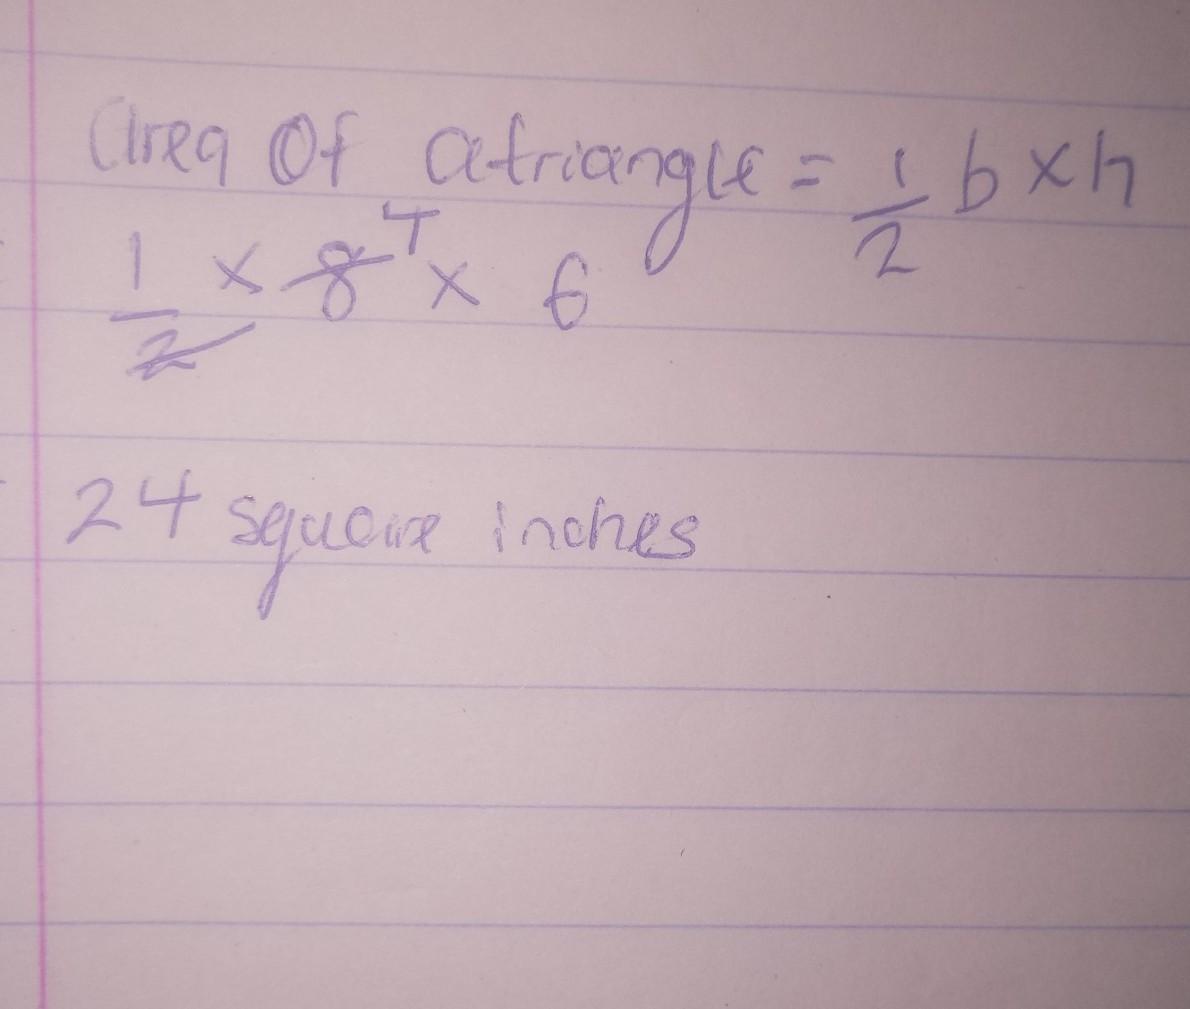 Area Of a triangle = 1/2 b x h
1/2 x 8 4 x 6
24 square inches